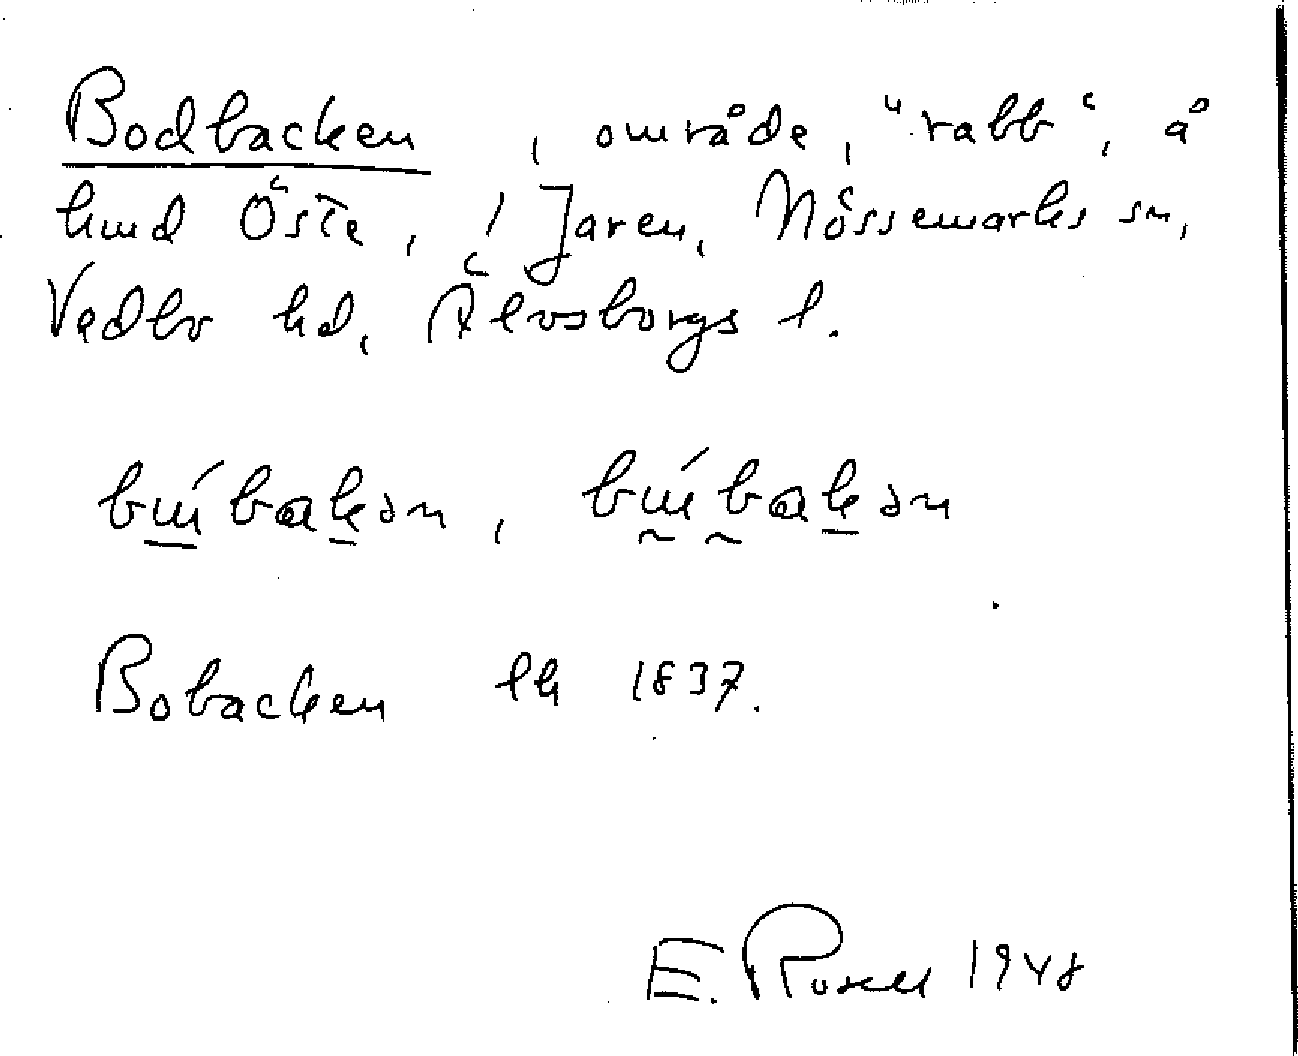 Bodbacken, område, "rabb", å
hmd Öste, 1 Jaren, Nössemarks sn,
Vedbo hd, Älvsborgs l.
bu̱íbaḵən, bṵíb̰aḵən
Bobacken lh 1837.
E. Rosell 1948